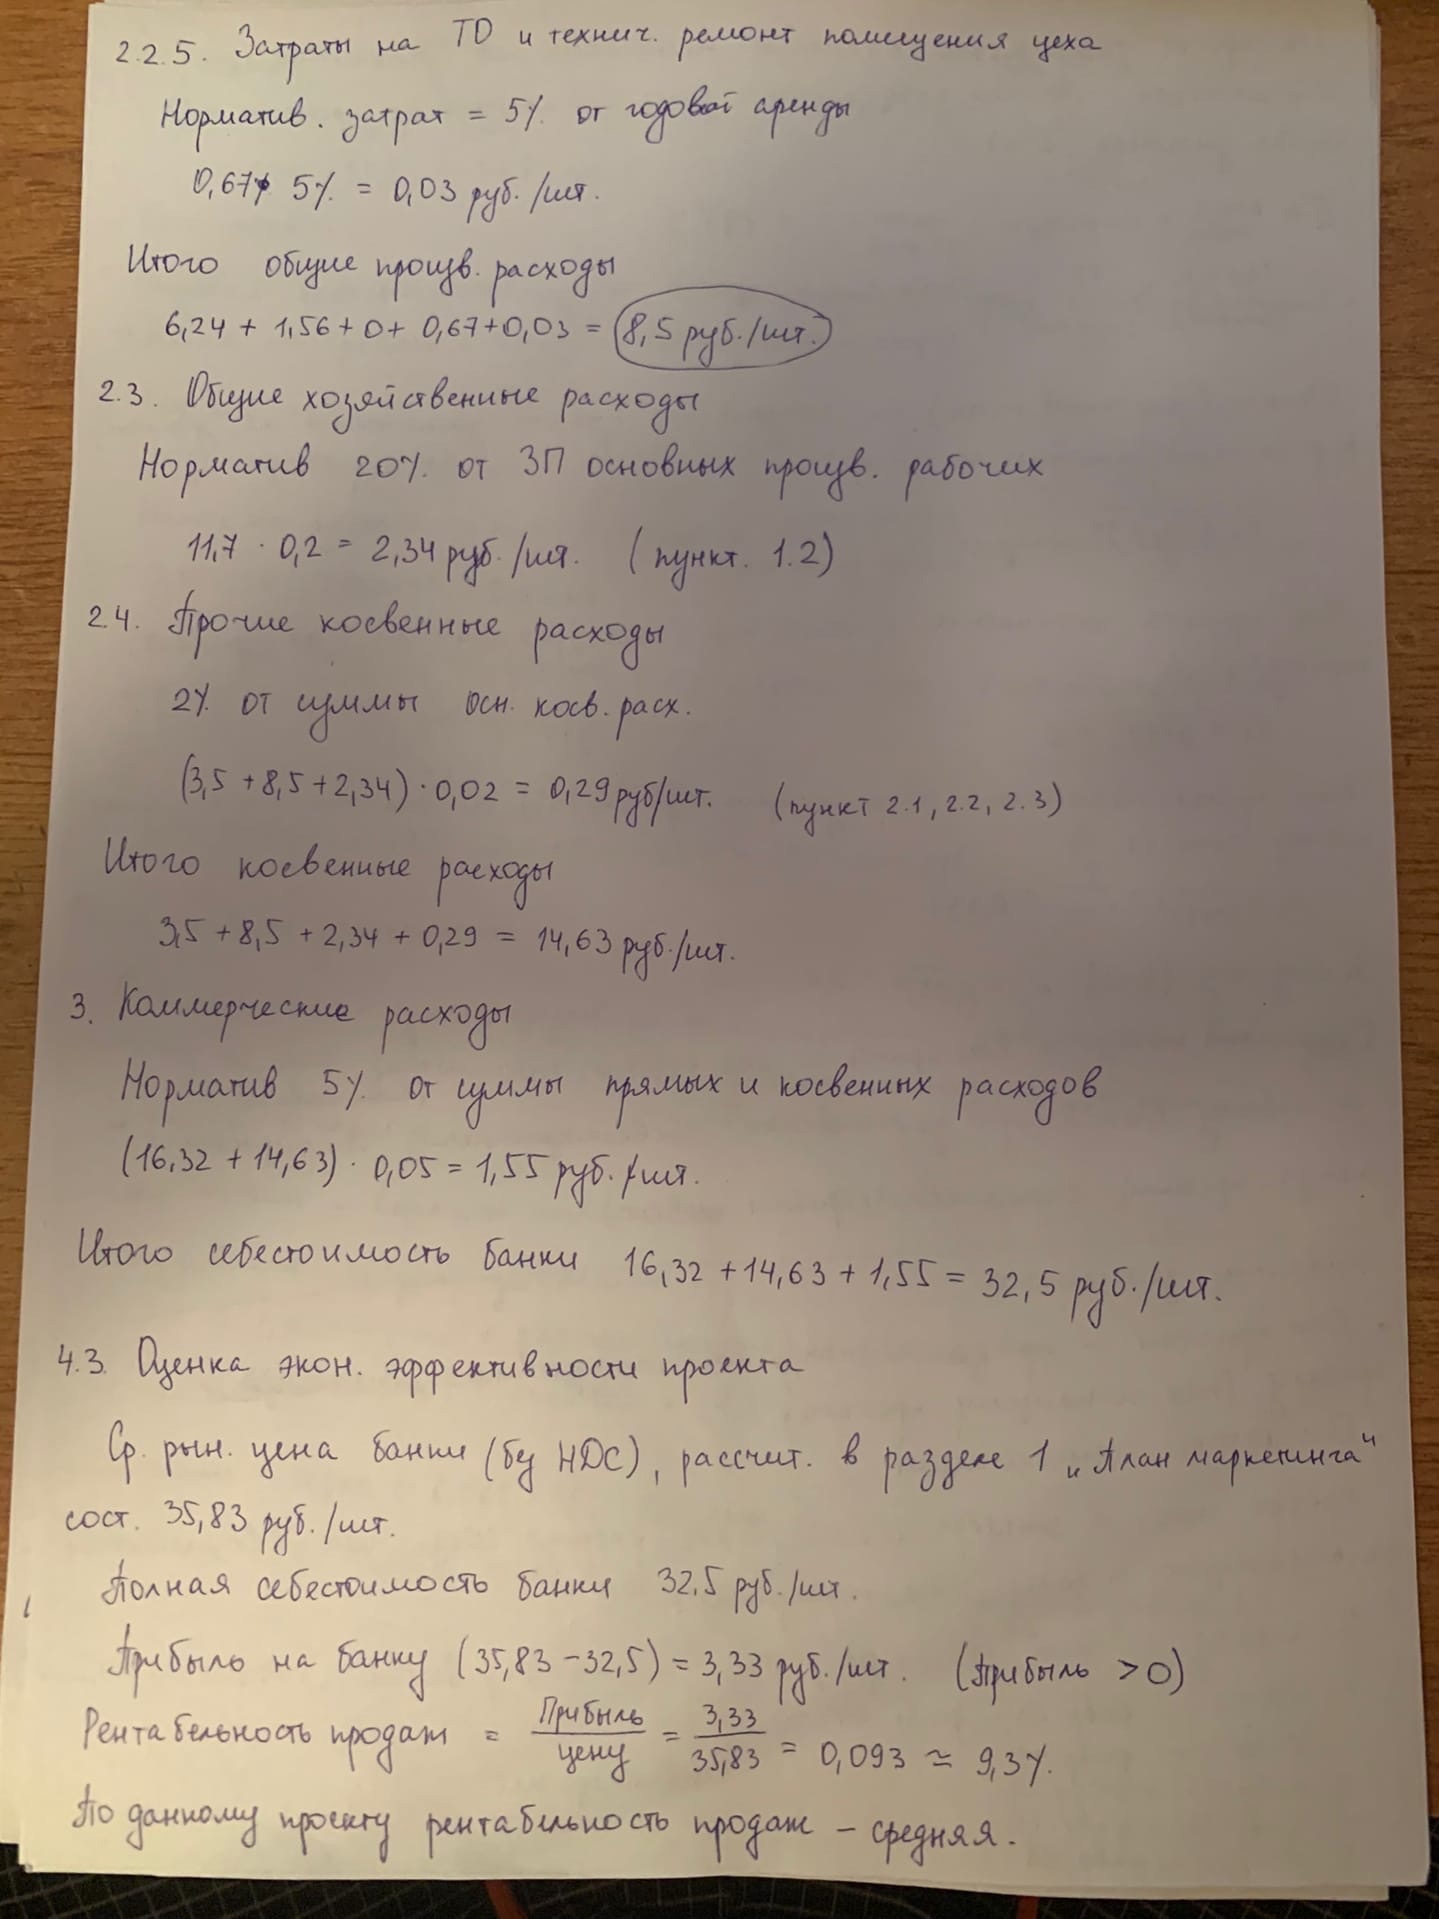 2.2.5. Затраты на ТО и технич. ремонт помещения цеха
Норматив. затрат = 5% от годовой аренды
0,67 · 5% = 0,03 руб./шт.
Итого общие произв. расходы
6,24 + 1,56 + 0 + 0,67 + 0,03 = 8,5 руб./шт.
2.3. Общие хозяйственные расходы
Норматив 20% от ЗП основных произв. рабочих
11,7 · 0,2 = 2,34 руб./шт. (пункт. 1.2)
2.4. Прочие косвенные расходы
2% от суммы осн. косв. расх.
(3,5 + 8,5 + 2,34) · 0,02 = 0,29 руб/шт. (пункт 2.1, 2.2, 2.3)
Итого косвенные расходы
3,5 + 8,5 + 2,34 + 0,29 = 14,63 руб./шт.
3. Коммерческие расходы
Норматив 5% от суммы прямых и косвенных расходов
(16,32 + 14,63) · 0,05 = 1,55 руб./шт.
Итого себестоимость банки 16,32 + 14,63 + 1,55 = 32,5 руб./шт.
4.3. Оценка экон. эффективности проекта
Ср. рын. цена банки (без НДС), рассчит. в разделе 1 „План маркетинга"
сост. 35,83 руб./шт.
Полная себестоимость банки 32,5 руб./шт.
Прибыль на банку (35,83 - 32,5) = 3,33 руб./шт. (Прибыль > 0)
Рентабельность продаж = Прибыль/цену = 3,33/35,83 = 0,093 ≈ 9,3%.
По данному проекту рентабельность продаж - средняя.